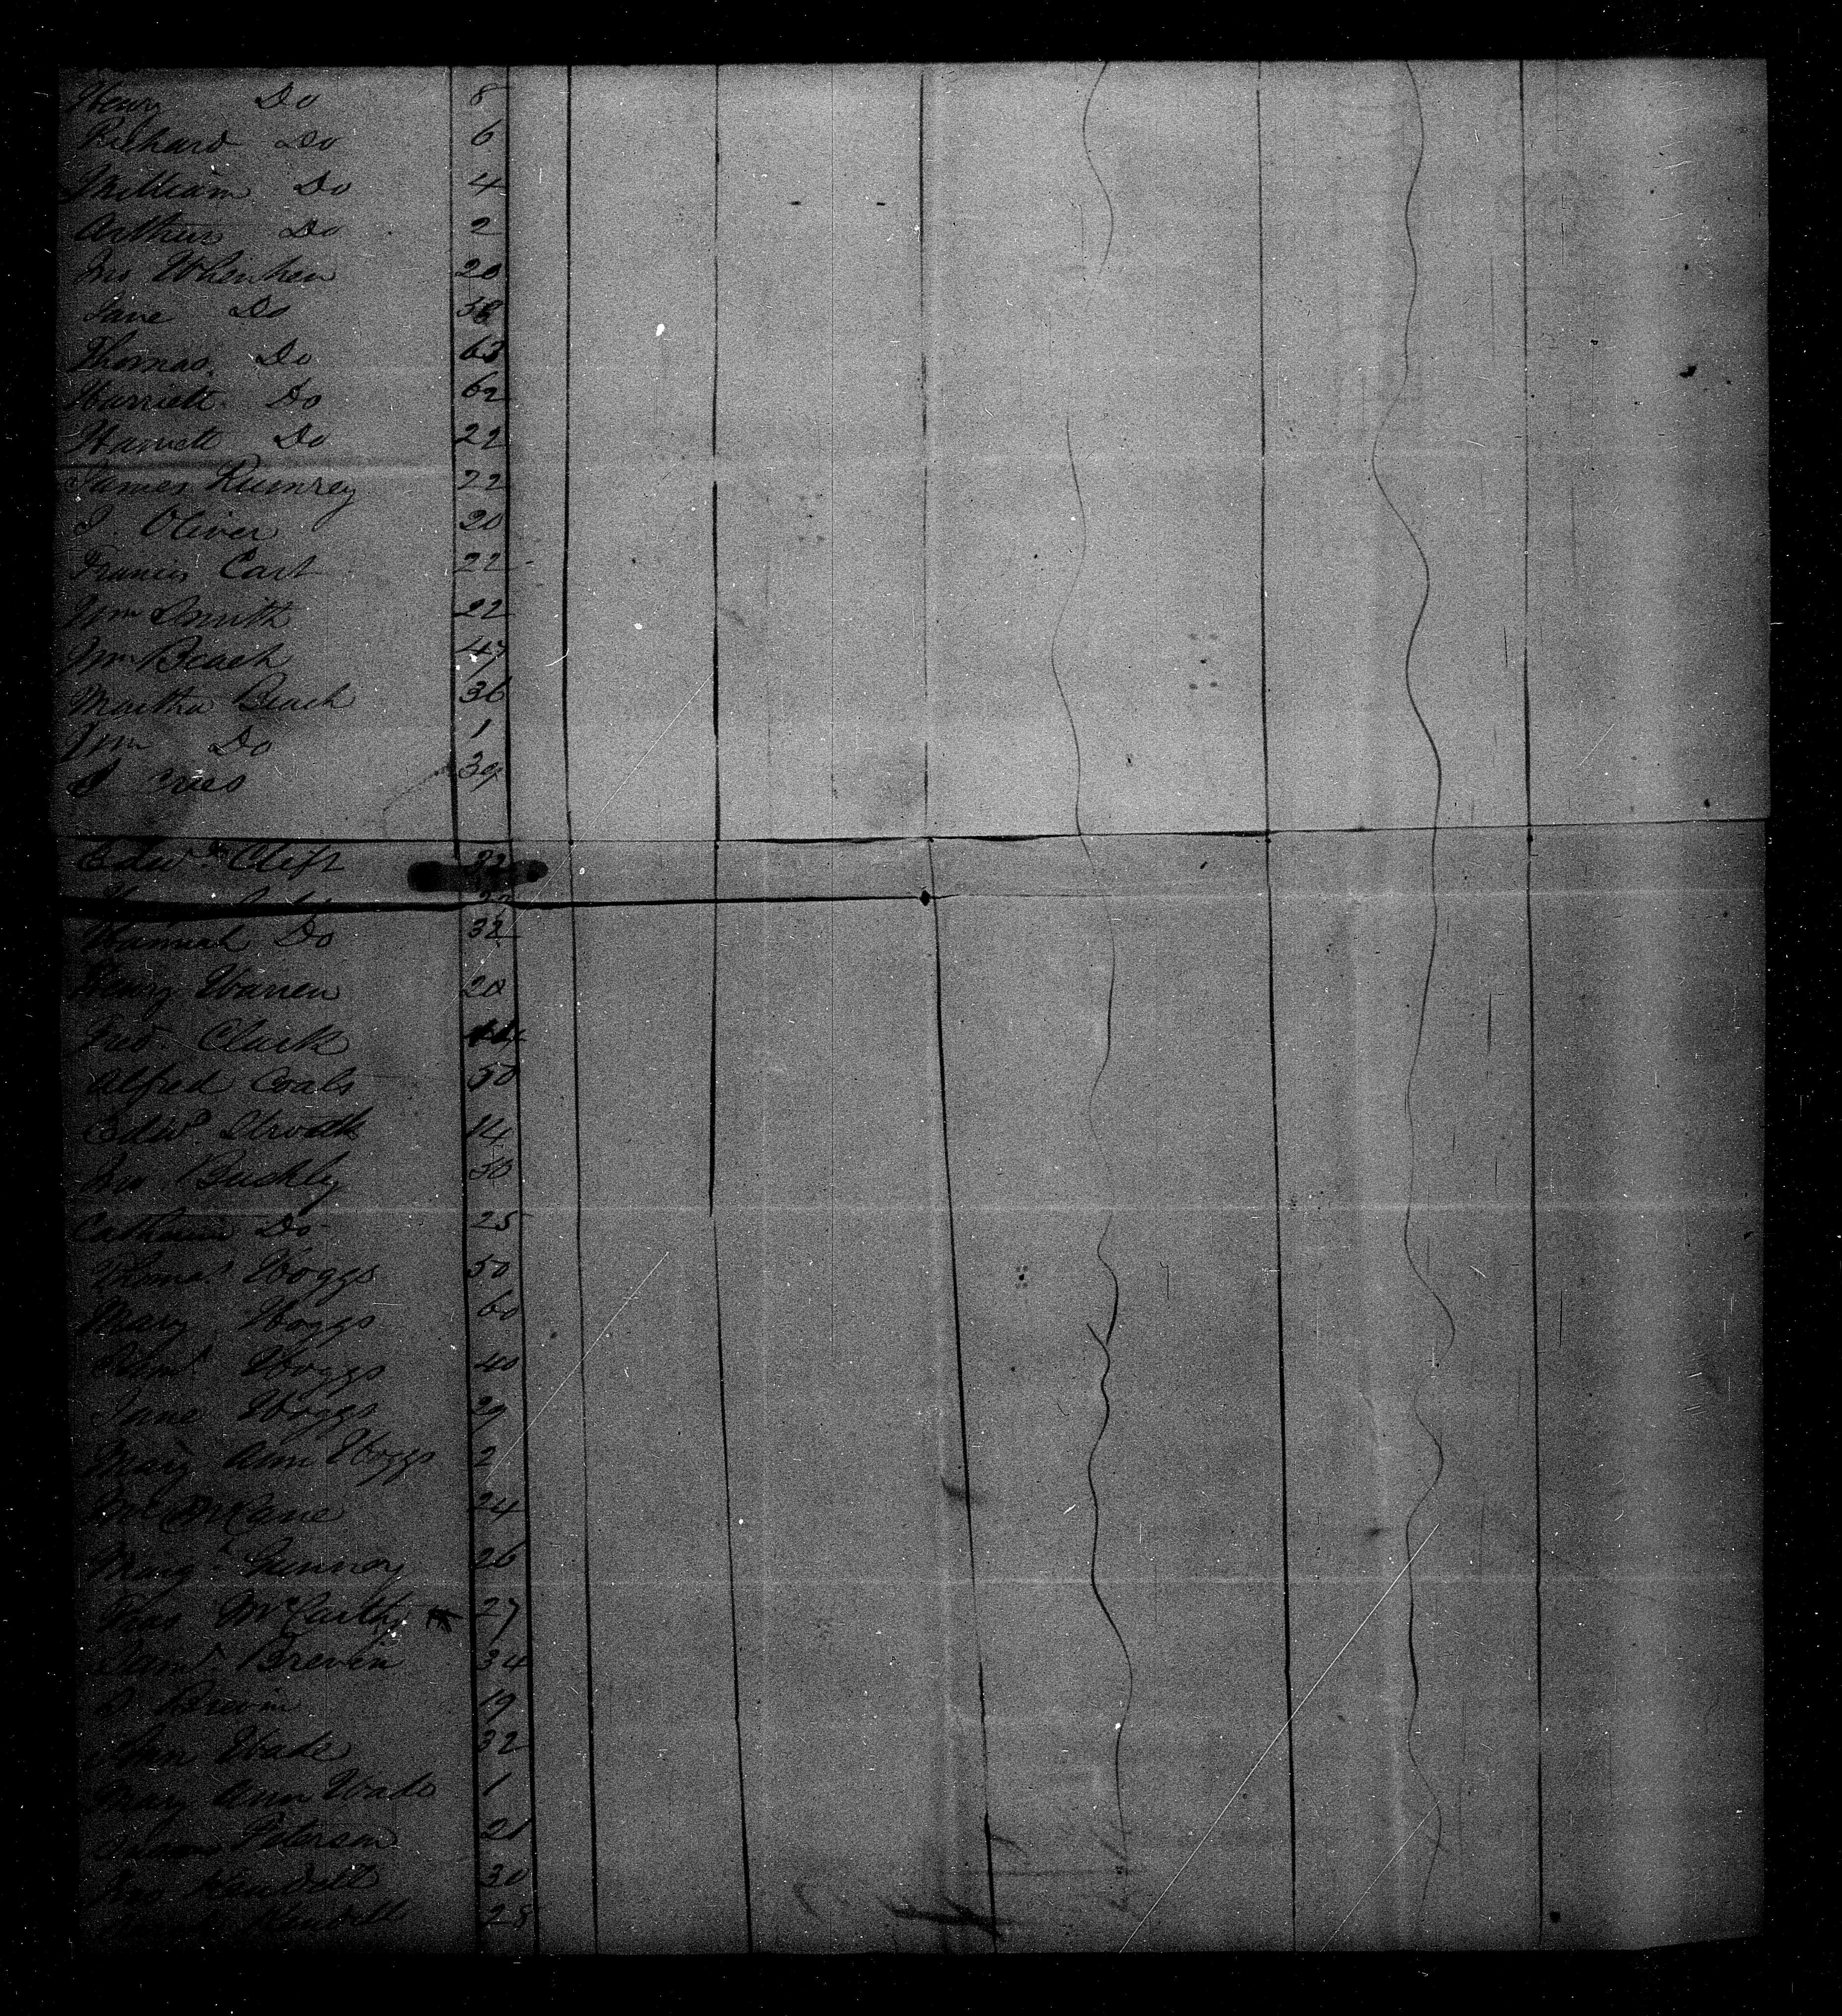 Henry Do 8
Richard Do 6
William Do 4
Arthur Do 2
Jno Whenhen 20
Jane Do 38
Thomas Do 63
Harriett Do 62
Harriett Do 22
James Rumrey 22
J. Oliver 20
Francis Cart 22
Wm Smith 22
Wm Beach 47
Martha Beach 36
Wm Do 1
J 39
Edwd Clift 22
Hannah Do 32
Henry Warren 20
Jno Clark
Alfred Coals 50
Edwd 14
Buckley 30
Catharine Do 25
Thomas Hoggs 50
Mary Hoggs 60
Saml Hoggs 40
Jane Hoggs 29
Mary Ann Hoggs 2
Kane 24
Margt 26
Thos McCarthy 27
Saml Brevin 34
J Brevin 19
Ann Wade 32
Mary Ann Wade 1
Peterson 21
Jno Kendall 30
Kendall 25